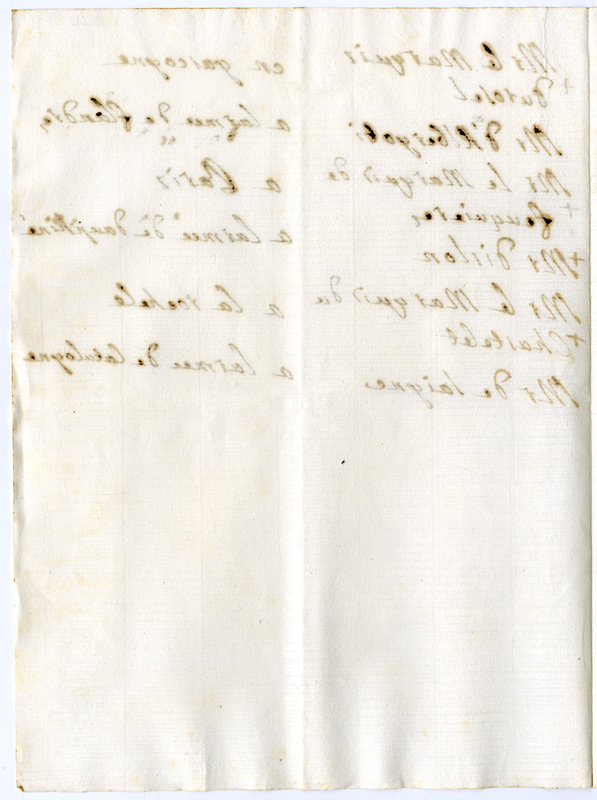 Mr le Marquis en gascogne
+ Dutotal
Mr d'Albergoti a larmee de flandre
Mr le Marquis de a Paris
+ feuquieres
+ Mr dillon a larmee de dauphiné
Mr le Marquis du a la rochele
+ Chastelet
Mr de laigne a larmee de catalogne